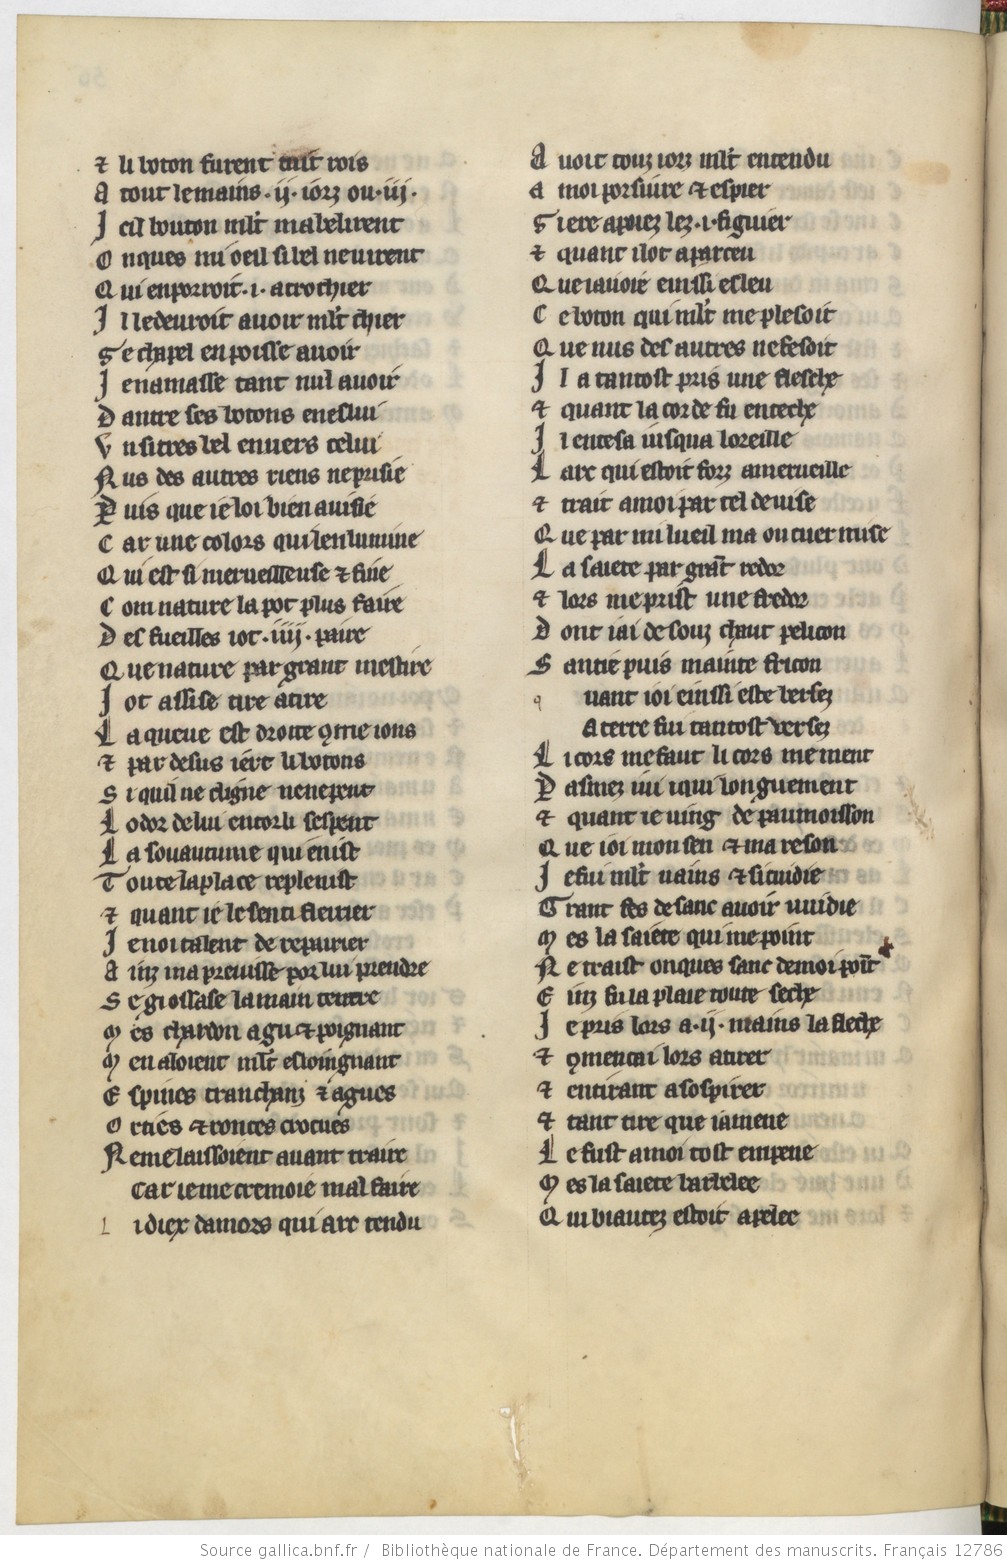 ⁊ li boton furent tuit rois
A tout le mains .ij. iorz ou .iij.
I cil bouton ml̃t mabelirent
O nques mi oeil si bel ne uirent
Q ui en porroit .i. acrochier
I l le deuroit auoir ml̃t chier
S e chapel en poisse auoir
I e namasse tant nul auoir
D antre ses botons en eslui
V n si tres bel enuers celui
N us des autres riens ne prisie
P uis que ie loi bien auisie
C ar une colors qui lenlumine
Q ui est si merueilleuse ⁊ fine
C om nature la pot plus faire
D es fueilles iot .iiij. paire
Q ue nature par grant mestire
I ot assise tire a tire
L a queue est droite 9me ions
⁊ par desus iert li botons
S i quil ne cligne ne ne pent
L odor de lui entor li sespent
L a souautume qui en ist
T oute la place replenist
⁊ quant ie le senti flerier
I e noi talent de repairier
A inz ma preuisse por lui prendre
S e gi ossase la main tentre
M es chardon agu ⁊ poignant
M en aloient ml̃t esloingnant
E spines tranchanz ⁊ agues
O rties ⁊ ronces crocues
N e me laissoient auant traire
Car ie me cremoie mal faire
L i diex damors qui arc tendu
A uoit touz iorz ml̃t entendu
A moi porsuire ⁊ espier
S iere apuiez lez .i. figuier
⁊ quant il ot aparceu
Q ue iauoie einssi esleu
C e boton qui ml̃t me plesoit
Q ue nus des autres ne fesoit
I l a tantost pris une flesche
⁊ quant la corde fu enteche
I l entesa iusqua loreille
L arc qui estoit forz a merueille
⁊ trait a moi par tel deuise
Q ue par mi lueil ma ou cuer mise
L a saiete par grãt redor
⁊ lors me prist une fredor
D ont iai desouz chaut pelicon
S antie puis mainte fricon
q uant ioi einssi este bersez
A terre fui tantost versez
L i cors me faut li cors me ment
P asmez iui iqui longuement
⁊ quant ie uing de paumoisson
Q ue ioi mon sen ⁊ ma reson
I e fui ml̃t uains ⁊ si cuidie
G rant fes de sanc auoir uuidie
M es la saiete qui me point
N e traist onques sanc de moi poĩt
E inz fu la plaie toute seche
I e pris lors a .ij. mains la fleche
⁊ 9mencai lors a tirer
⁊ en tirant a sospirer
⁊ tant tire que iamene
L e fust a moi tost empene
M es la saiete barbelee
Q ui biautez estoit apelee
Source gallica.bnf.fr / Bibliothèque nationale de France. Département des manuscrits. Français 12786